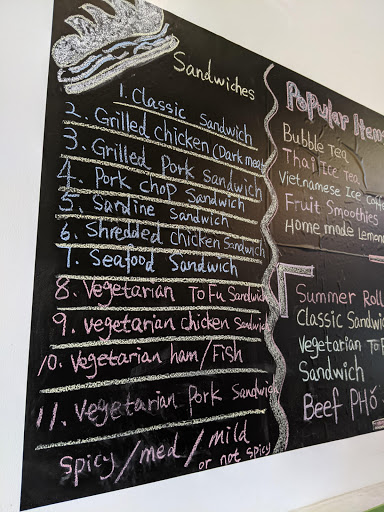 Sandwiches
1. Classic Sandwich
2. Grilled chicken (Dark meat
3. Grilled Pork Sandwich
4. Pork chop Sandwich
5. Sardine Sandwich
6. Shredded chicken Sandwich
7. Seafood Sandwich
8. Vegetarian ToFu Sandwich
9. Vegetarian Chicken Sandwich
10. Vegetarian ham/Fish
11. Vegetarian Pork Sandwich
Spicy/med/mild
or not spicy
Popular Item
Bubble Tea
Thai Ice Tea
Vietnamese Ice Coffe
Fruit Smoothies
Home made Lemona
Summer Roll
Classic Sandwi
Vegetarian ToF
Sandwich
Beef PHỞ